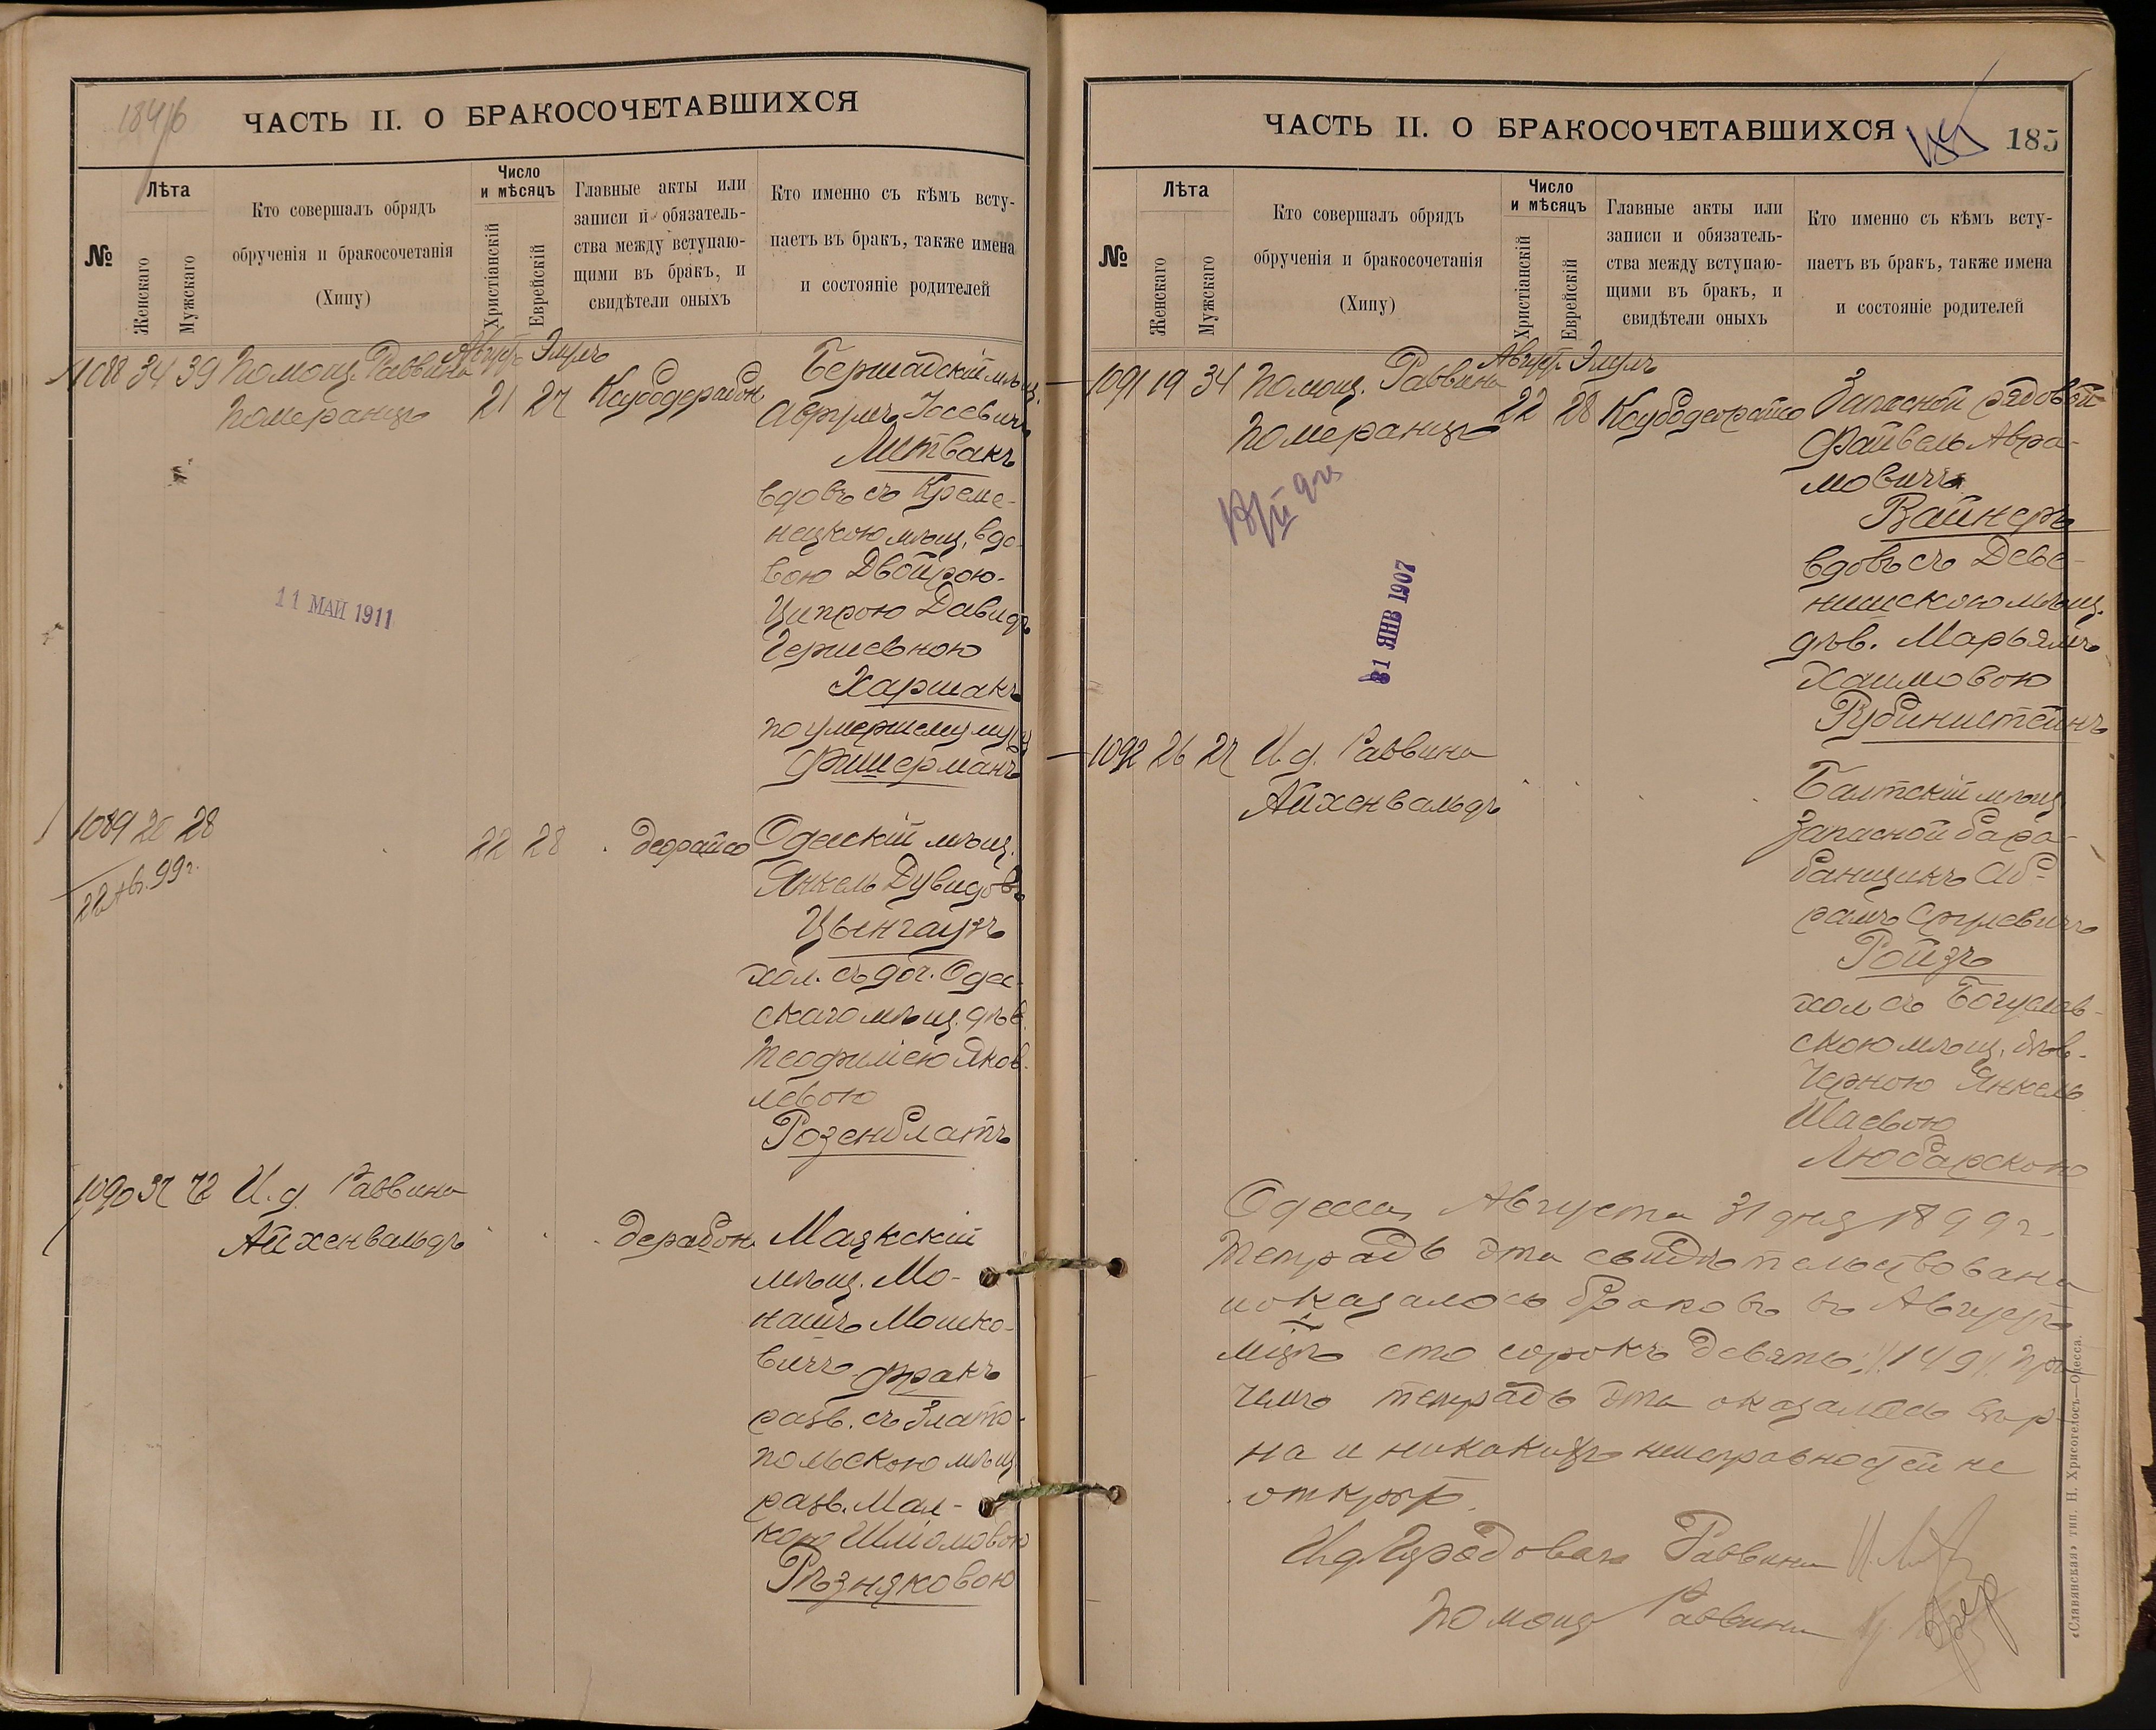 184/6
ЧАСТЬ II. О БРАКОСОЧЕТАВШИХСЯ
№
Лѣта
Женскаго
Мужскаго
Кто совершалъ обрядъ
обрученія и бракосочетанія
(Хипу)
Число
и мѣсяцъ
Христіанскій
Еврейскій
Главные акты или
записи и обязатель-
ства между вступаю-
щими въ бракъ, и
свидѣтели оныхъ
Кто именно съ кѣмъ всту-
паетъ въ бракъ, также имена
и состояніе родителей
1088 34 39 Помощ. Раввина Августъ Элулъ
Померанцъ 21 27
Бершадскій мѣщ.
Іосевичъ
Литвакъ
вдовъ съ Креме-
нецкою мѣщ. вдо-
вою Двойрою-
Ципрою Давидъ
Гершевною
Харшакъ
по умершему мужу
Фишерманъ
11 МАЙ 1911
1089 20 28 22 28 деорайсо Одесскій мѣщ.
22 Ав. 99 г.
Янкель Дувидовъ
Цынгаузъ
хол. съ доч. Одес-
скаго мѣщ. дѣв.
Теофиліею Яков-
левою
Розенблатъ
1090 37 72 И. д. Раввина
Айхенвальдъ дерабон. Маякскій
мѣщ. Мо-
нашъ Мошко-
вичъ Фракъ
разв. съ Злато-
польскою мѣщ.
разв. Мал-
кою Шліомовою
Рѣзняковою
ЧАСТЬ II. О БРАКОСОЧЕТАВШИХСЯ
185
№
Лѣта
Женскаго
Мужскаго
Кто совершалъ обрядъ
обрученія и бракосочетанія
(Хипу)
Число
и мѣсяцъ
Христіанскій
Еврейскій
Главные акты или
записи и обязатель-
ства между вступаю-
щими въ бракъ, и
свидѣтели оныхъ
Кто именно съ кѣмъ всту-
паетъ въ бракъ, также имена
и состояніе родителей
1091 19 34 Помощ. Раввина Августъ Элулъ
Померанцъ 22 28 Запасной рядовой
Файвель Авра-
мовичъ
Вайнеръ
вдовъ съ Деве-
нишскою мѣщ.
дѣв. Марьямъ
Хаимовою
Рубинштейнъ
31 ЯНВ 1907
1092 26 27 И. д. Раввина
Айхенвальдъ
Балтскій мѣщ.
запасной бара-
банщикъ Аб-
рамъ Срулевичъ
Ройзъ
хол. съ Богуслав-
скою мѣщ. дѣв.
Черною Янкель
Шаевою
Любарскою
Одесса, Августа 31 дня 1899 г.
Тетрадь эта свидѣтельствована
и оказалось браковъ въ Августѣ
м-цѣ сто сорокъ девять /149/ При
чемъ тетрадь эта оказалась вѣр-
на и никакихъ неисправностей не
открыто.
И. д. Городоваго Раввина
Помощ. Раввина
«Славянская» тип. Н. Хрисогелосъ—Одесса.